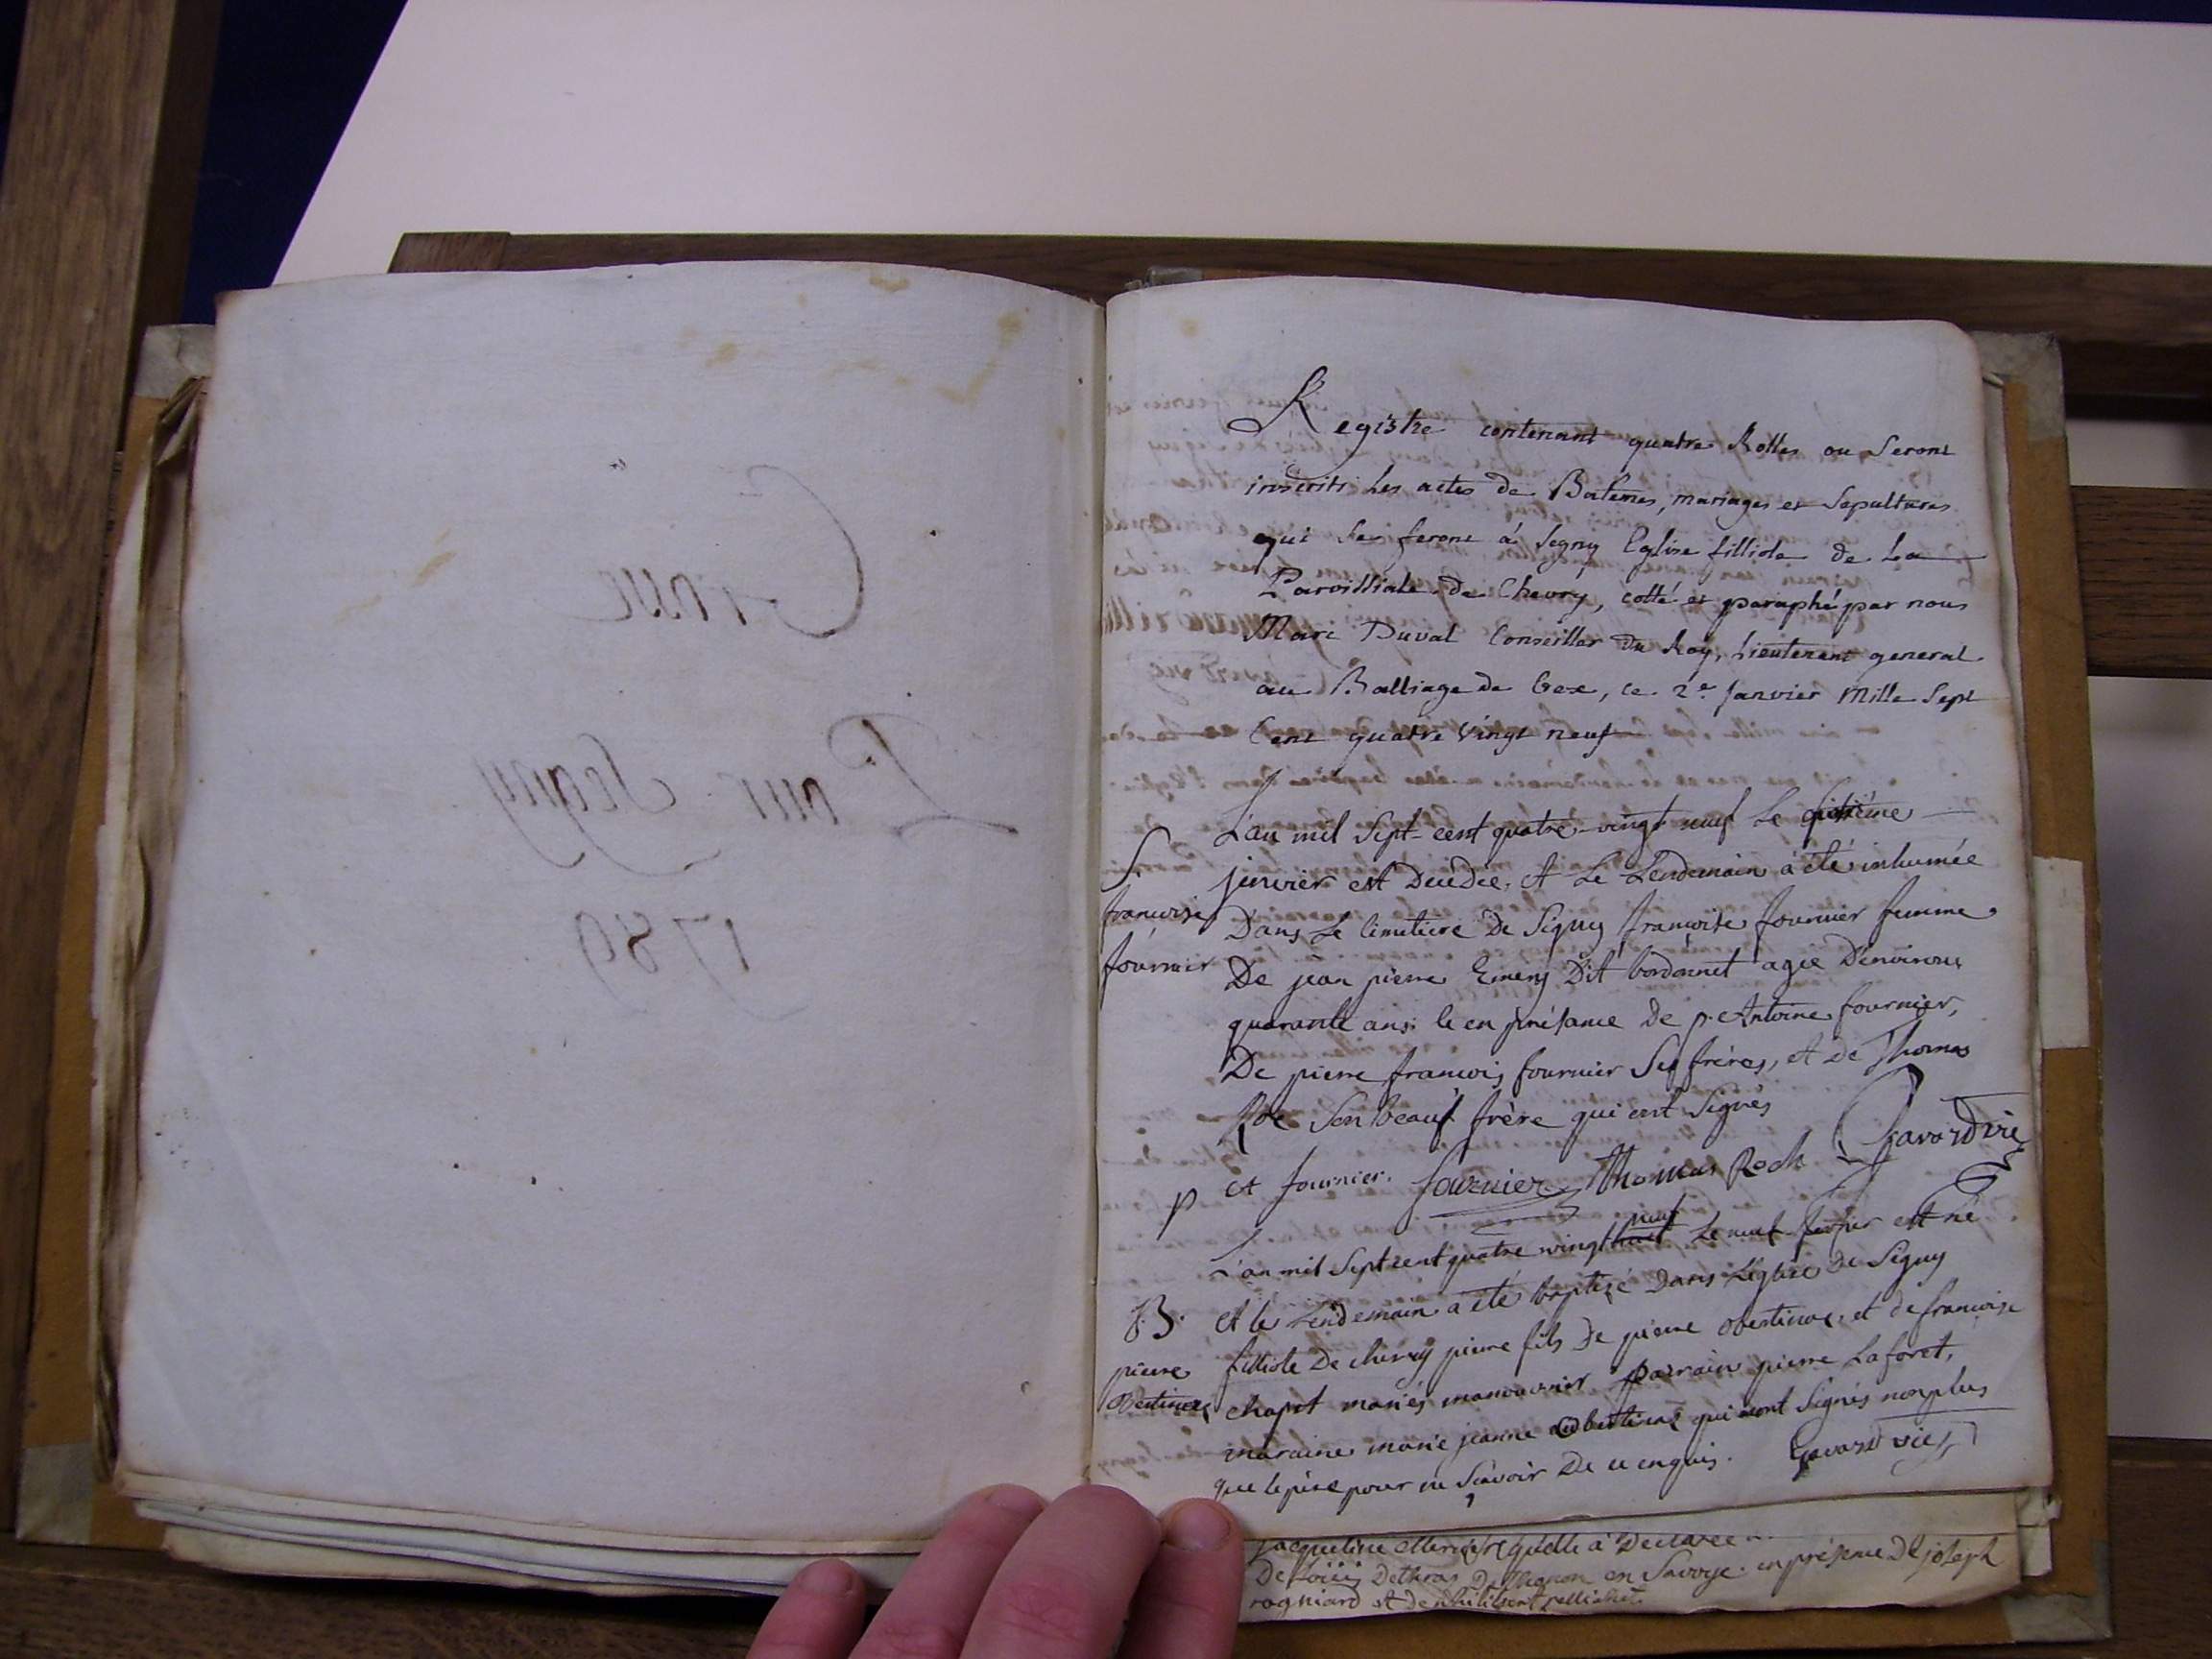 Pour Segny
1789
Registre contenant quatre Rolles ou Seront
inscrits les actes de Batêmes, mariages et Sepultures
qui se feront á Segny Eglise filliole de La
Paroissiale de Chevry, cotté et paraphé par nous
Marc Duval Conseiller du Roy, Lieutenant general
au Balliage de Gex, ce 2e Janvier Mille Sept
Cent quatre vingt neuf
L'an mil Sept-cent quatre-vingt neuf Le
janvier est Decedée, et Le Lendemain à été inhumée
S
francoise
Dans Le Cimetiere De Segny françoise fournier femme
fournier
De jean pierre Emery Dit bordonnet agée D'environ
quarante ans; le en présance De p. Antoine fournier,
De pierre francois fournier Ses fréres, et de Thomas
Roc Son beauf frère qui ont Signés
p et fournier. fournier Thomas Rock Gavard vic
neuf
L'an mil Sept cent quatre vingt huit Le neuf est né
B. et le Lendemain a été baptisé Dans L'églize de Segny
pierre
filliole De chevry pierre fils De pierre obertinoz, et de francoise
Obertinoz
chapot mariés manouvrier parrain pierre Laforet,
maraine marie jeanne obertinoz qui n'ont Signés nonplus
que le pére pour ne Scavoir De ce enquis. Gavard vic
De Savoye. en présence De joseph